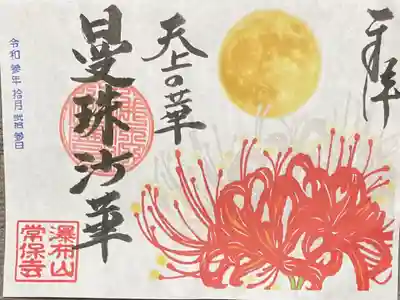 奉拝
天上の華
曼珠沙華
令和参年拾月弐拾参日
瀑布山
常保寺